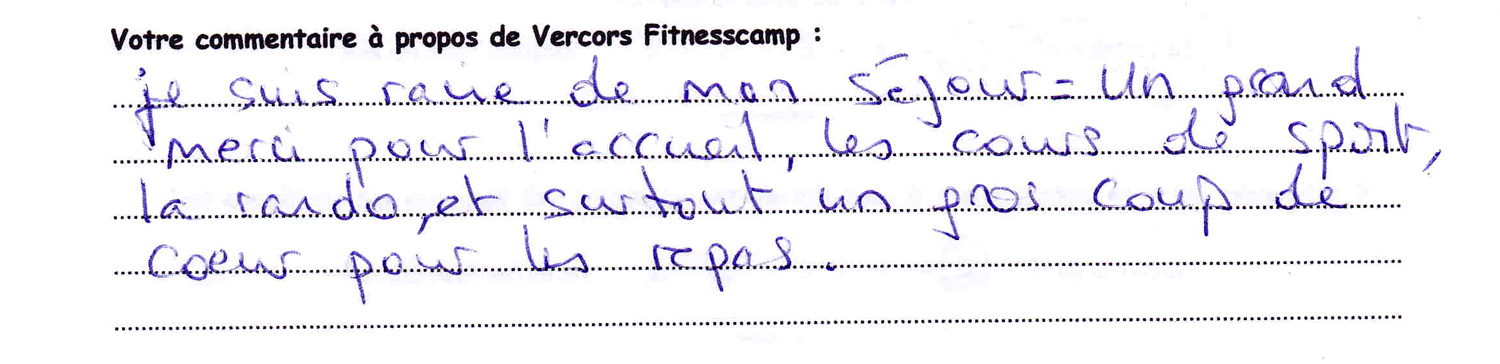 Votre commentaire à propos de Vercors Fitnesscamp :
je suis ravie de mon séjour = Un grand
merci pour l'accueil, les cours de sport,
la rando, et surtout un gros coup de
coeur pour les repas.